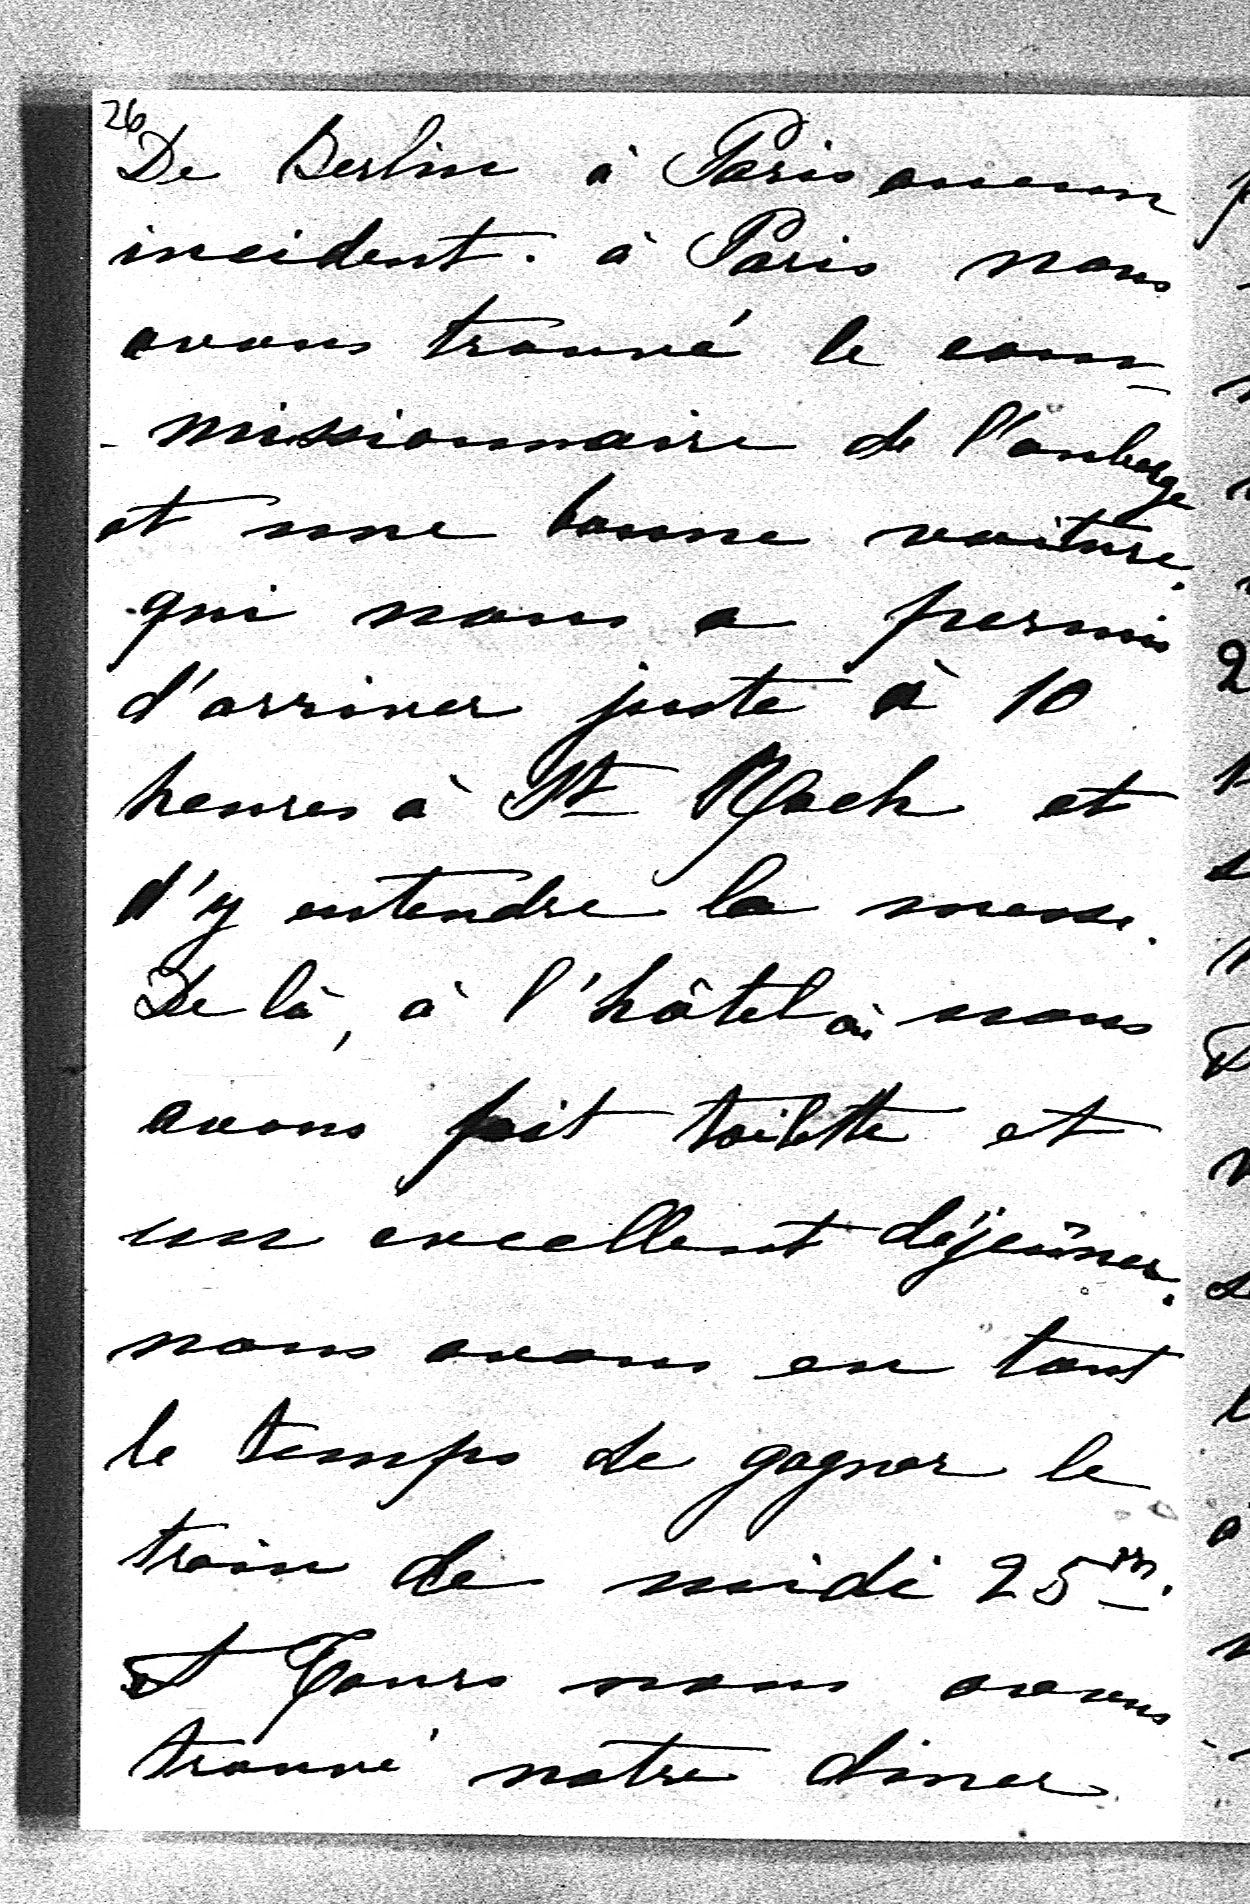 26
De Berlin à Paris aucun
incident. à Paris nous
avons trouvé le com-
-missionnaire de l'auberge
et une bonne voiture.
qui nous a permis
d'arriver juste à 10
heures à St Roch et
d'y entendre la messe.
De là, à l'hôtel où nous
avons fait toilette et
un excellent déjeûner.
nous avons eu tout
le temps de gagner le
train de midi 25 m.
et Tours nous avons
trouvé notre diner